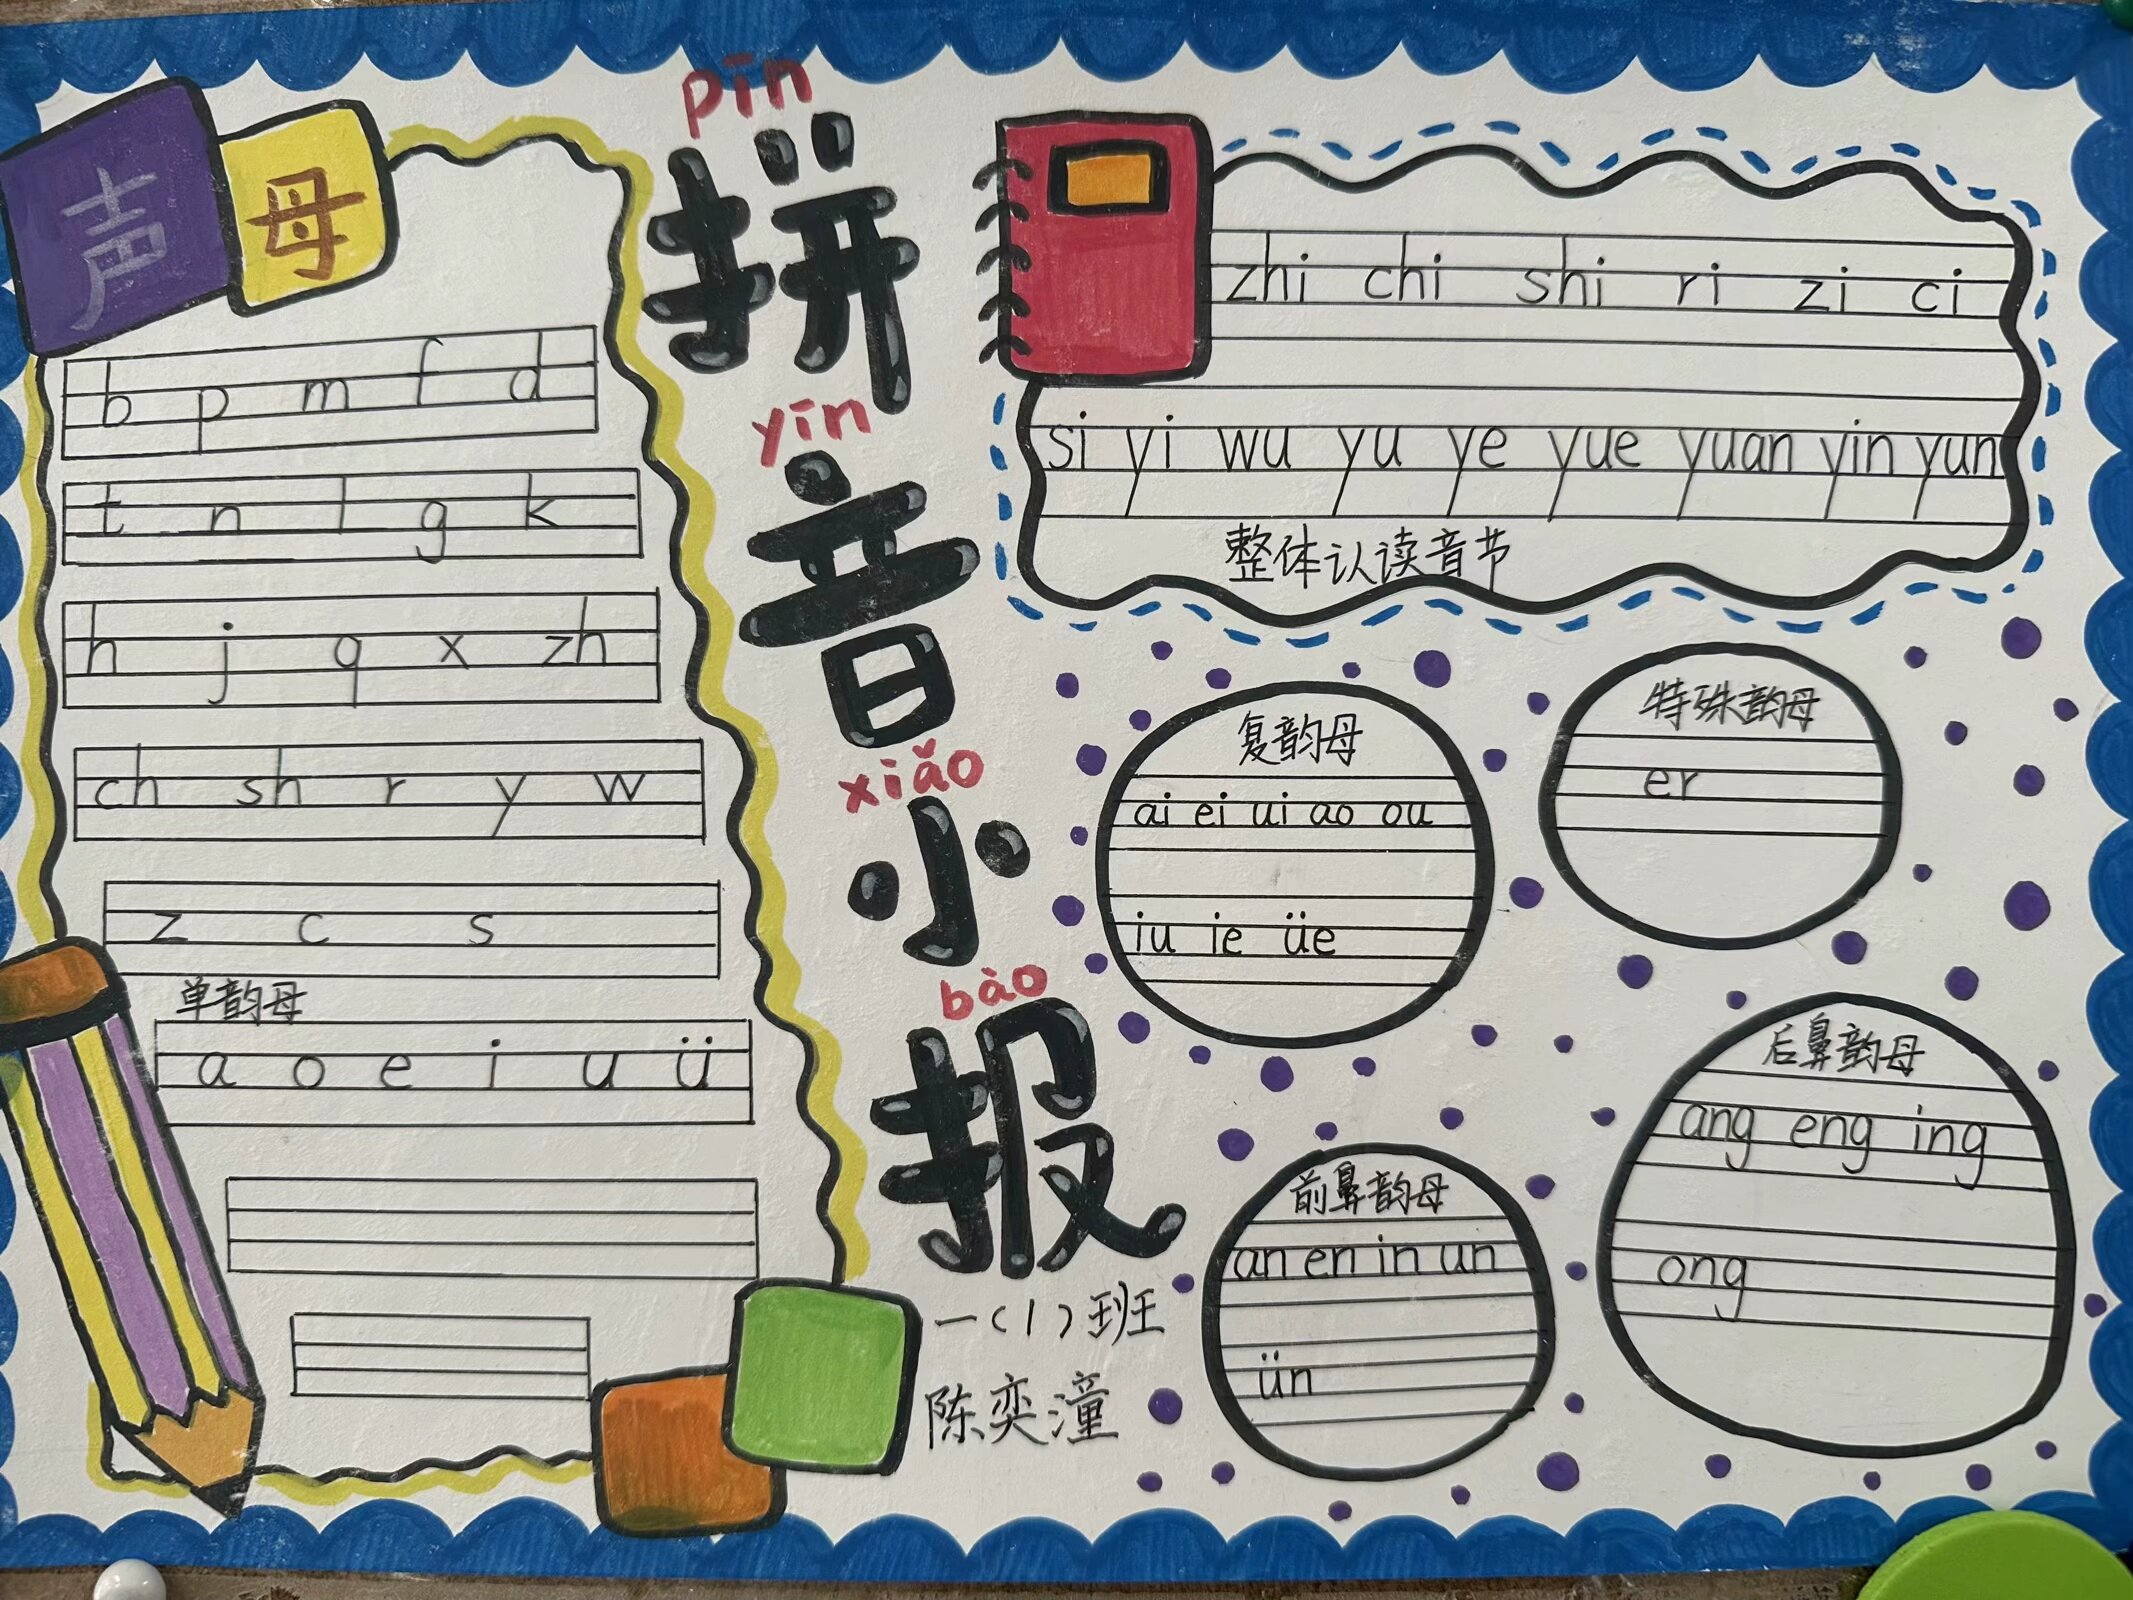 声母
b p m f d
t n l g k
h j q x zh
ch sh r y w
z c s
单韵母
a o e i u ü
pīn
拼
yīn
音
xiǎo
小
bào
报
一(1)班
陈奕潼
zhi chi shi ri zi ci
si yi wu yu ye yue yuan yin yun
整体认读音节
复韵母
ai ei ui ao ou
iu ie üe
特殊韵母
er
前鼻韵母
an en in un
ün
后鼻韵母
ang eng ing
ong